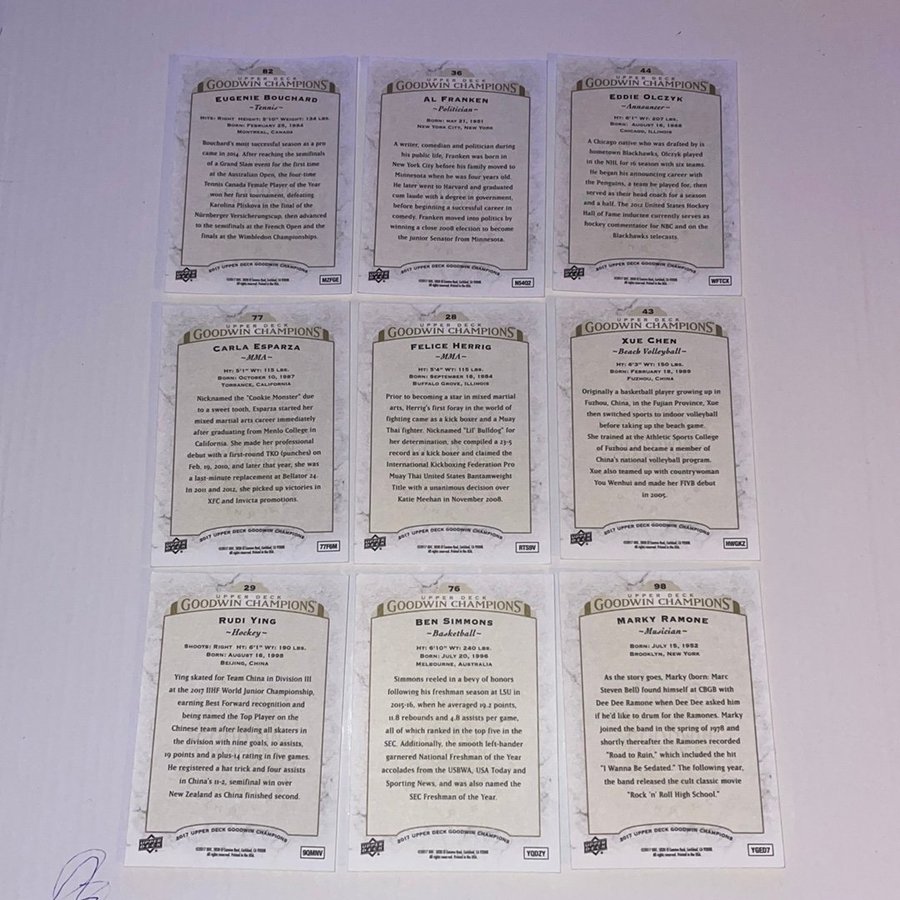 82
UPPER DECK
GOODWIN CHAMPIONS
EUGENIE BOUCHARD
~Tennis~
HITS: RIGHT HEIGHT: 5'10" WEIGHT: 134 LBS.
BORN: FEBRUARY 25, 1994
MONTREAL, CANADA
Bouchard's most successful season as a pro
came in 2014. After reaching the semifinals
of a Grand Slam event for the first time
at the Australian Open, the four-time
Tennis Canada Female Player of the Year
won her first tournament, defeating
Karolina Pliskova in the final of the
Nürnberger Versicherungscup, then advanced
to the semifinals at the French Open and the
finals at the Wimbledon Championships.
2017 UPPER DECK GOODWIN CHAMPIONS
MZFGE
36
UPPER DECK
GOODWIN CHAMPIONS
AL FRANKEN
~Politician~
BORN: MAY 21, 1951
NEW YORK CITY, NEW YORK
A writer, comedian and politician during
his public life, Franken was born in
New York City before his family moved to
Minnesota when he was four years old.
He later went to Harvard and graduated
cum laude with a degree in government,
before beginning a successful career in
comedy. Franken moved into politics by
winning a close 2008 election to become
the junior Senator from Minnesota.
2017 UPPER DECK GOODWIN CHAMPIONS
NS4Q2
44
UPPER DECK
GOODWIN CHAMPIONS
EDDIE OLCZYK
~Announcer~
HT: 6'1" WT: 207 LBS.
BORN: AUGUST 16, 1966
CHICAGO, ILLINOIS
A Chicago native who was drafted by is
hometown Blackhawks, Olczyk played
in the NHL for 16 seasons with six teams.
He began his announcing career with
the Penguins, a team he played for, then
served as their head coach for a season
and a half. The 2012 United States Hockey
Hall of Fame inductee currently serves as
hockey commentator for NBC and on the
Blackhawks telecasts.
2017 UPPER DECK GOODWIN CHAMPIONS
WFTCX
77
UPPER DECK
GOODWIN CHAMPIONS
CARLA ESPARZA
~MMA~
HT: 5'1" WT: 115 LBS.
BORN: OCTOBER 10, 1987
TORRANCE, CALIFORNIA
Nicknamed the "Cookie Monster" due
to a sweet tooth, Esparza started her
mixed martial arts career immediately
after graduating from Menlo College in
California. She made her professional
debut with a first-round TKO (punches) on
Feb. 19, 2010, and later that year, she was
a last-minute replacement at Bellator 24.
In 2011 and 2012, she picked up victories in
XFC and Invicta promotions.
2017 UPPER DECK GOODWIN CHAMPIONS
77F6M
28
UPPER DECK
GOODWIN CHAMPIONS
FELICE HERRIG
~MMA~
HT: 5'4" WT: 115 LBS.
BORN: SEPTEMBER 16, 1984
BUFFALO GROVE, ILLINOIS
Prior to becoming a star in mixed martial
arts, Herrig's first foray in the world of
fighting came as a kick boxer and a Muay
Thai fighter. Nicknamed "Lil' Bulldog" for
her determination, she compiled a 23-5
record as a kick boxer and claimed the
International Kickboxing Federation Pro
Muay Thai United States Bantamweight
Title with a unanimous decision over
Katie Meehan in November 2008.
2017 UPPER DECK GOODWIN CHAMPIONS
RTS9V
43
UPPER DECK
GOODWIN CHAMPIONS
XUE CHEN
~Beach Volleyball~
HT: 6'3" WT: 150 LBS.
BORN: FEBRUARY 18, 1989
FUZHOU, CHINA
Originally a basketball player growing up in
Fuzhou, China, in the Fujian Province, Xue
then switched sports to indoor volleyball
before taking up the beach game.
She trained at the Athletic Sports College
of Fuzhou and became a member of
China's national volleyball program.
Xue also teamed up with countrywoman
You Wenhui and made her FIVB debut
in 2005.
2017 UPPER DECK GOODWIN CHAMPIONS
HWGKZ
29
UPPER DECK
GOODWIN CHAMPIONS
RUDI YING
~Hockey~
SHOOTS: RIGHT HT: 6'1" WT: 190 LBS.
BORN: AUGUST 16, 1998
BEIJING, CHINA
Ying skated for Team China in Division III
at the 2017 IIHF World Junior Championship,
earning Best Forward recognition and
being named the Top Player on the
Chinese team after leading all skaters in
the division with nine goals, 10 assists,
19 points and a plus-14 rating in five games.
He registered a hat trick and four assists
in China's 11-2, semifinal win over
New Zealand as China finished second.
2017 UPPER DECK GOODWIN CHAMPIONS
9QMNV
76
UPPER DECK
GOODWIN CHAMPIONS
BEN SIMMONS
~Basketball~
HT: 6'10" WT: 240 LBS.
BORN: JULY 20, 1996
MELBOURNE, AUSTRALIA
Simmons reeled in a bevy of honors
following his freshman season at LSU in
2015-16, when he averaged 19.2 points,
11.8 rebounds and 4.8 assists per game,
all of which ranked in the top five in the
SEC. Additionally, the smooth left-hander
garnered National Freshman of the Year
accolades from the USBWA, USA Today and
Sporting News, and was also named the
SEC Freshman of the Year.
2017 UPPER DECK GOODWIN CHAMPIONS
YQDZY
98
UPPER DECK
GOODWIN CHAMPIONS
MARKY RAMONE
~Musician~
BORN: JULY 15, 1952
BROOKLYN, NEW YORK
As the story goes, Marky (born: Marc
Steven Bell) found himself at CBGB with
Dee Dee Ramone when Dee Dee asked him
if he'd like to drum for the Ramones. Marky
joined the band in the spring of 1978 and
shortly thereafter the Ramones recorded
"Road to Ruin," which included the hit
"I Wanna Be Sedated." The following year,
the band released the cult classic movie
"Rock 'n' Roll High School."
2017 UPPER DECK GOODWIN CHAMPIONS
YGED7